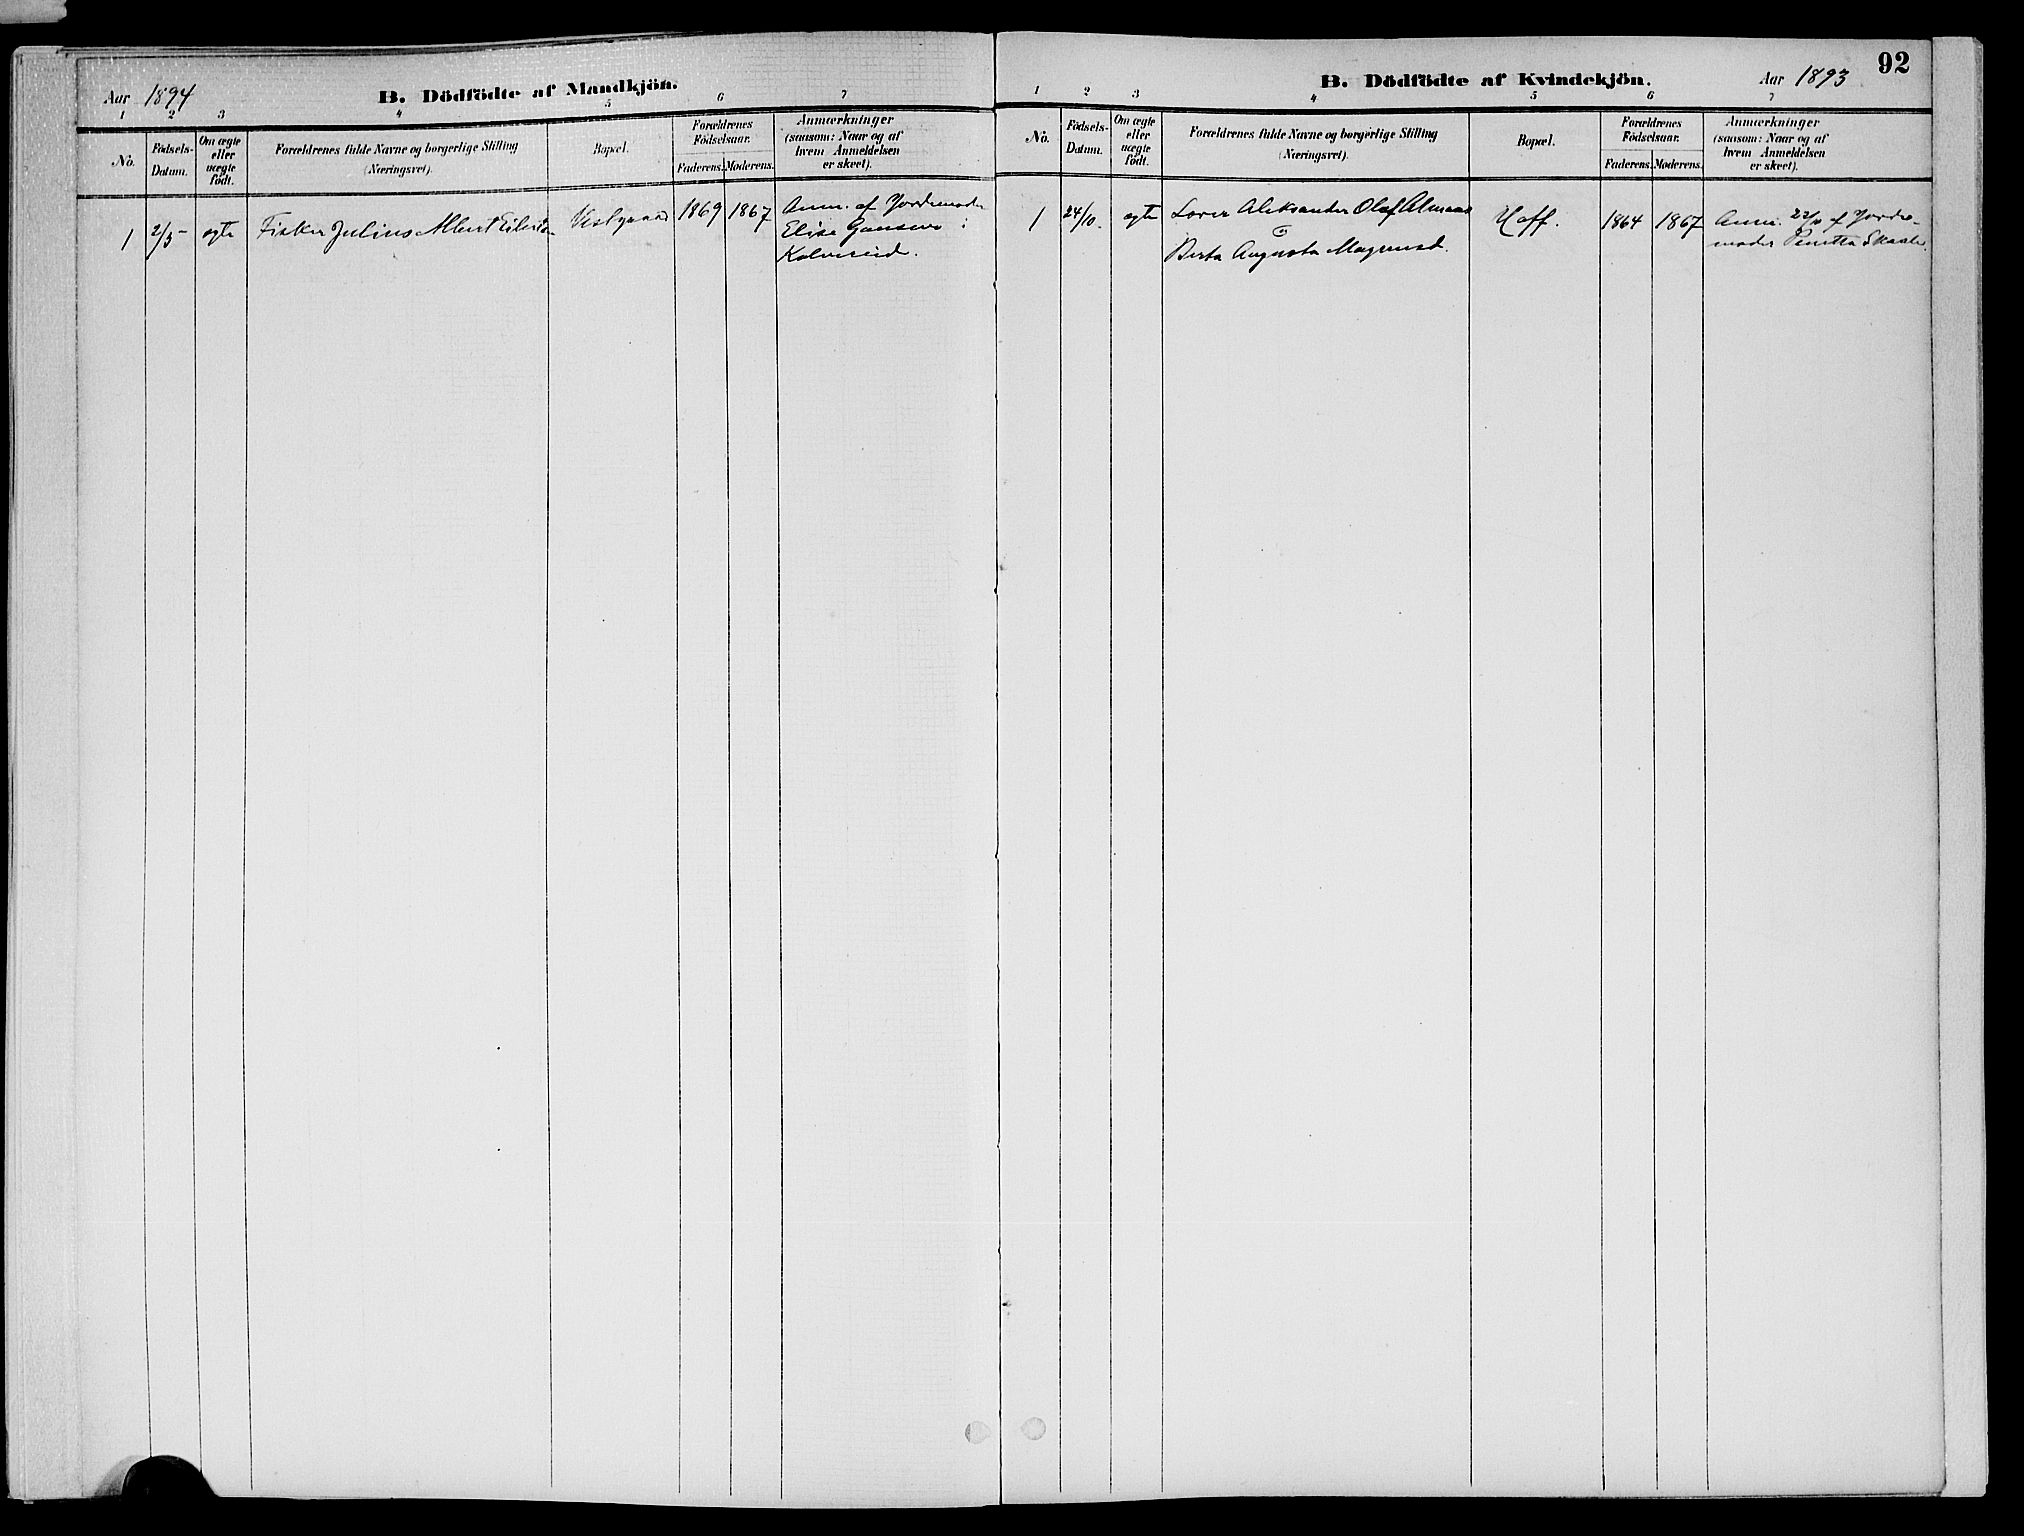 92
Aar 1894
B. Dödfödte af Mandkjön.
1 2 3 4 5 6 7
No.
Födsels-
Datum.
Om ægte
eller
uægte
födt.
Forældrenes fulde Navne og borgerlige Stilling
(Næringsvei).
Bopæl.
Forældrenes
Födselsaar.
Faderens. Moderens.
Anmærkninger
(saasom: Naar og af
hvem Anmeldelsen
er skeet).
1 2/5 ægte Fisker Julius Albert 1869 1867 Anm. af Jordemoder
Elise i
Kalveseid.
B. Dödfödte af Kvindekjön.
Aar 1893
1 2 3 4 5 6 7
No.
Födsels-
Datum.
Om ægte
eller
uægte
födt.
Forældrenes fulde Navne og borgerlige Stilling
(Næringsvei).
Bopæl.
Forældrenes
Födselsaar.
Faderens. Moderens.
Anmærkninger
(saasom: Naar og af
hvem Anmeldelsen
er skeet).
1 24/10. ægte Aleksander Olaf Hoff. 1864 1867 Anm. af Jorde-
Augusta
moder